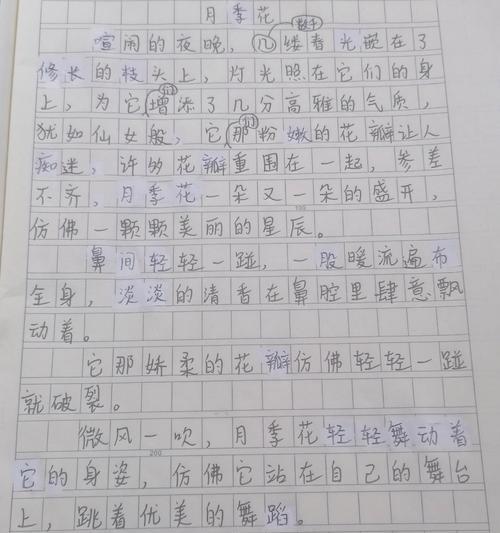 月季花
喧闹的夜晚，几缕春光嵌在了
数千
修长的枝头上，灯光照在它们的身
上，为它增添了几分高雅的气质，
们
犹如仙女般，它那粉嫩的花瓣让人
们
痴迷，许多花瓣重围在一起，参差
不齐，月季花一朵又一朵的盛开，
仿佛一颗颗美丽的星辰。
100
鼻间轻轻一碰，一股暖流遍布
全身，淡淡的清香在鼻腔里肆意飘
动着。
它那娇柔的花瓣仿佛轻轻一碰
就破裂。
微风一吹，月季花轻轻舞动着
200
它的身姿，仿佛它站在自己的舞台
上，跳着优美的舞蹈。